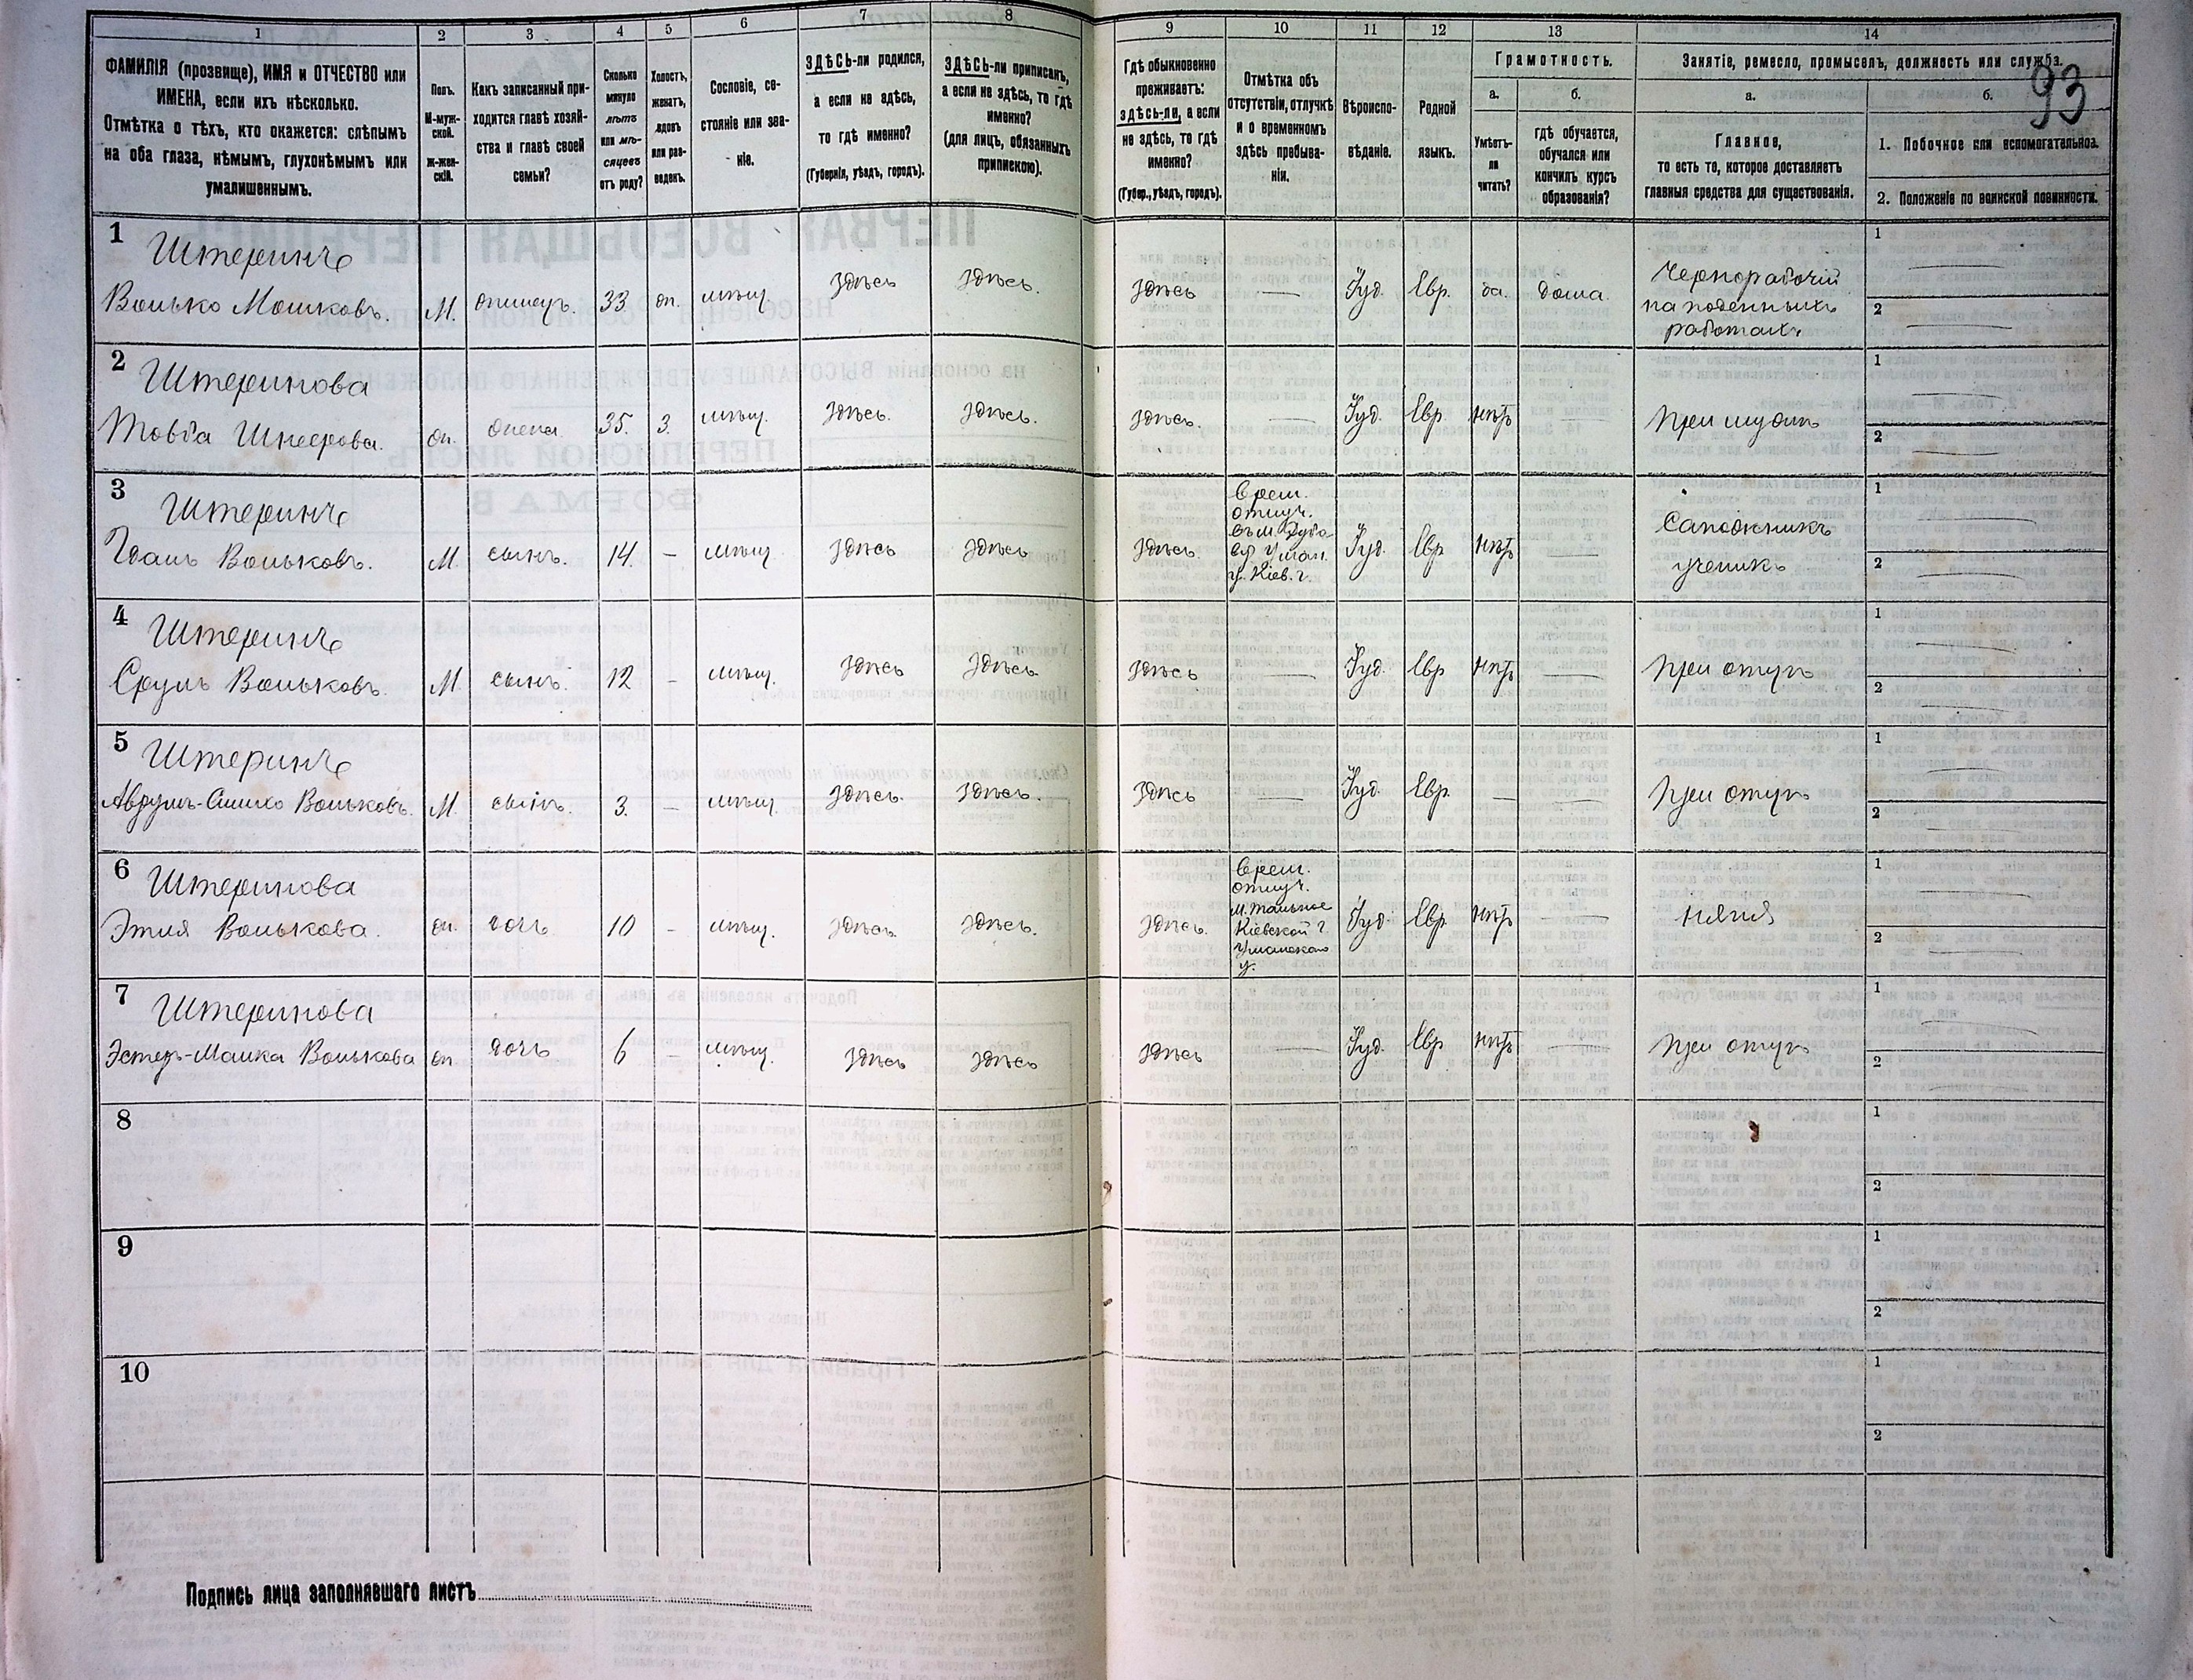 1 2 3 4 5 6 7 8 9 10 11 12 13 14
93
ФАМИЛІЯ (прозвище), ИМЯ и ОТЧЕСТВО или
ИМЕНА, если ихъ нѣсколько.
Отмѣтка о тѣхъ, кто окажется: слѣпымъ
на оба глаза, нѣмымъ, глухонѣмымъ или
умалишеннымъ.
Полъ.
М-муж-
ской.
Ж-жен-
скій.
Какъ записанный при-
ходится главѣ хозяй-
ства и главѣ своей
семьи?
Сколько
минуло
лѣтъ
или мѣ-
сяцевъ
отъ роду?
Холостъ,
женатъ,
вдовъ
или раз-
веденъ.
Сословіе, со-
стояніе или зва-
ніе.
ЗДѢСЬ-ли родился,
а если не здѣсь,
то гдѣ именно?
(Губернія, уѣздъ, городъ).
ЗДѢСЬ-ли приписанъ,
а если не здѣсь, то гдѣ
именно?
(для лицъ, обязанныхъ
припискою).
Гдѣ обыкновенно
проживаетъ:
здѣсь-ли, а если
не здѣсь, то гдѣ
именно?
(Губер., уѣздъ, городъ).
Отмѣтка объ
отсутствіи, отлучкѣ
и о временномъ
здѣсь пребыва-
ніи.
Вѣроиспо-
вѣданіе.
Родной
языкъ.
Грамотность.
а.
Умѣетъ-
ли
читать?
б.
гдѣ обучается,
обучался или
кончилъ курсъ
образованія?
Занятіе, ремесло, промыселъ, должность или служба.
а.
Главное,
то есть то, которое доставляетъ
главныя средства для существованія.
б.
1. Побочное или вспомогательное.
2. Положеніе по воинской повинности.
1 Штеринъ
Волько Мошковъ. М. 33. жн. мѣщ. здѣсь здѣсь. здѣсь — Іуд. Евр. да. дома. Чернорабочій
на поденныхъ
работахъ
1 —
2 —
2 Штеринова
Товба Шнеерова. ж. жена 35. з. мѣщ. здѣсь. здѣсь. здѣсь. — Іуд. Евр. нѣтъ — при мужѣ
1 —
2 —
3 Штеринъ
Вольковъ. М. сынъ. 14. — мѣщ. здѣсь здѣсь здѣсь. Врем.
отлуч.
Уман.
у. Кіев. г. Іуд. Евр нѣтъ — Сапожникъ
ученикъ
1 —
2 —
4 Штеринъ
Сруль Вольковъ. М. сынъ. 12 — мѣщ. здѣсь здѣсь. здѣсь — Іуд. Евр нѣтъ — при отцѣ
1 —
2 —
5 Штеринъ
Вольковъ. М. сынъ. 3. — мѣщ. здѣсь. здѣсь. здѣсь — Іуд. Евр. — — при отцѣ
1 —
2 —
6 Штеринова
Этля Волькова. ж. дочь 10 — мѣщ. здѣсь. здѣсь. здѣсь. Врем.
отлуч.
м. Тальное
Кіевской г.
Уманскаго
у. Іуд. Евр нѣтъ — няня
1 —
2 —
7 Штеринова
Эстеръ-Малка Волькова ж. дочь 6 — мѣщ. здѣсь здѣсь здѣсь — Іуд. Евр нѣтъ — при отцѣ
1 —
2 —
8 1
2
9 1
2
10 1
2
Подпись лица заполнявшаго листъ